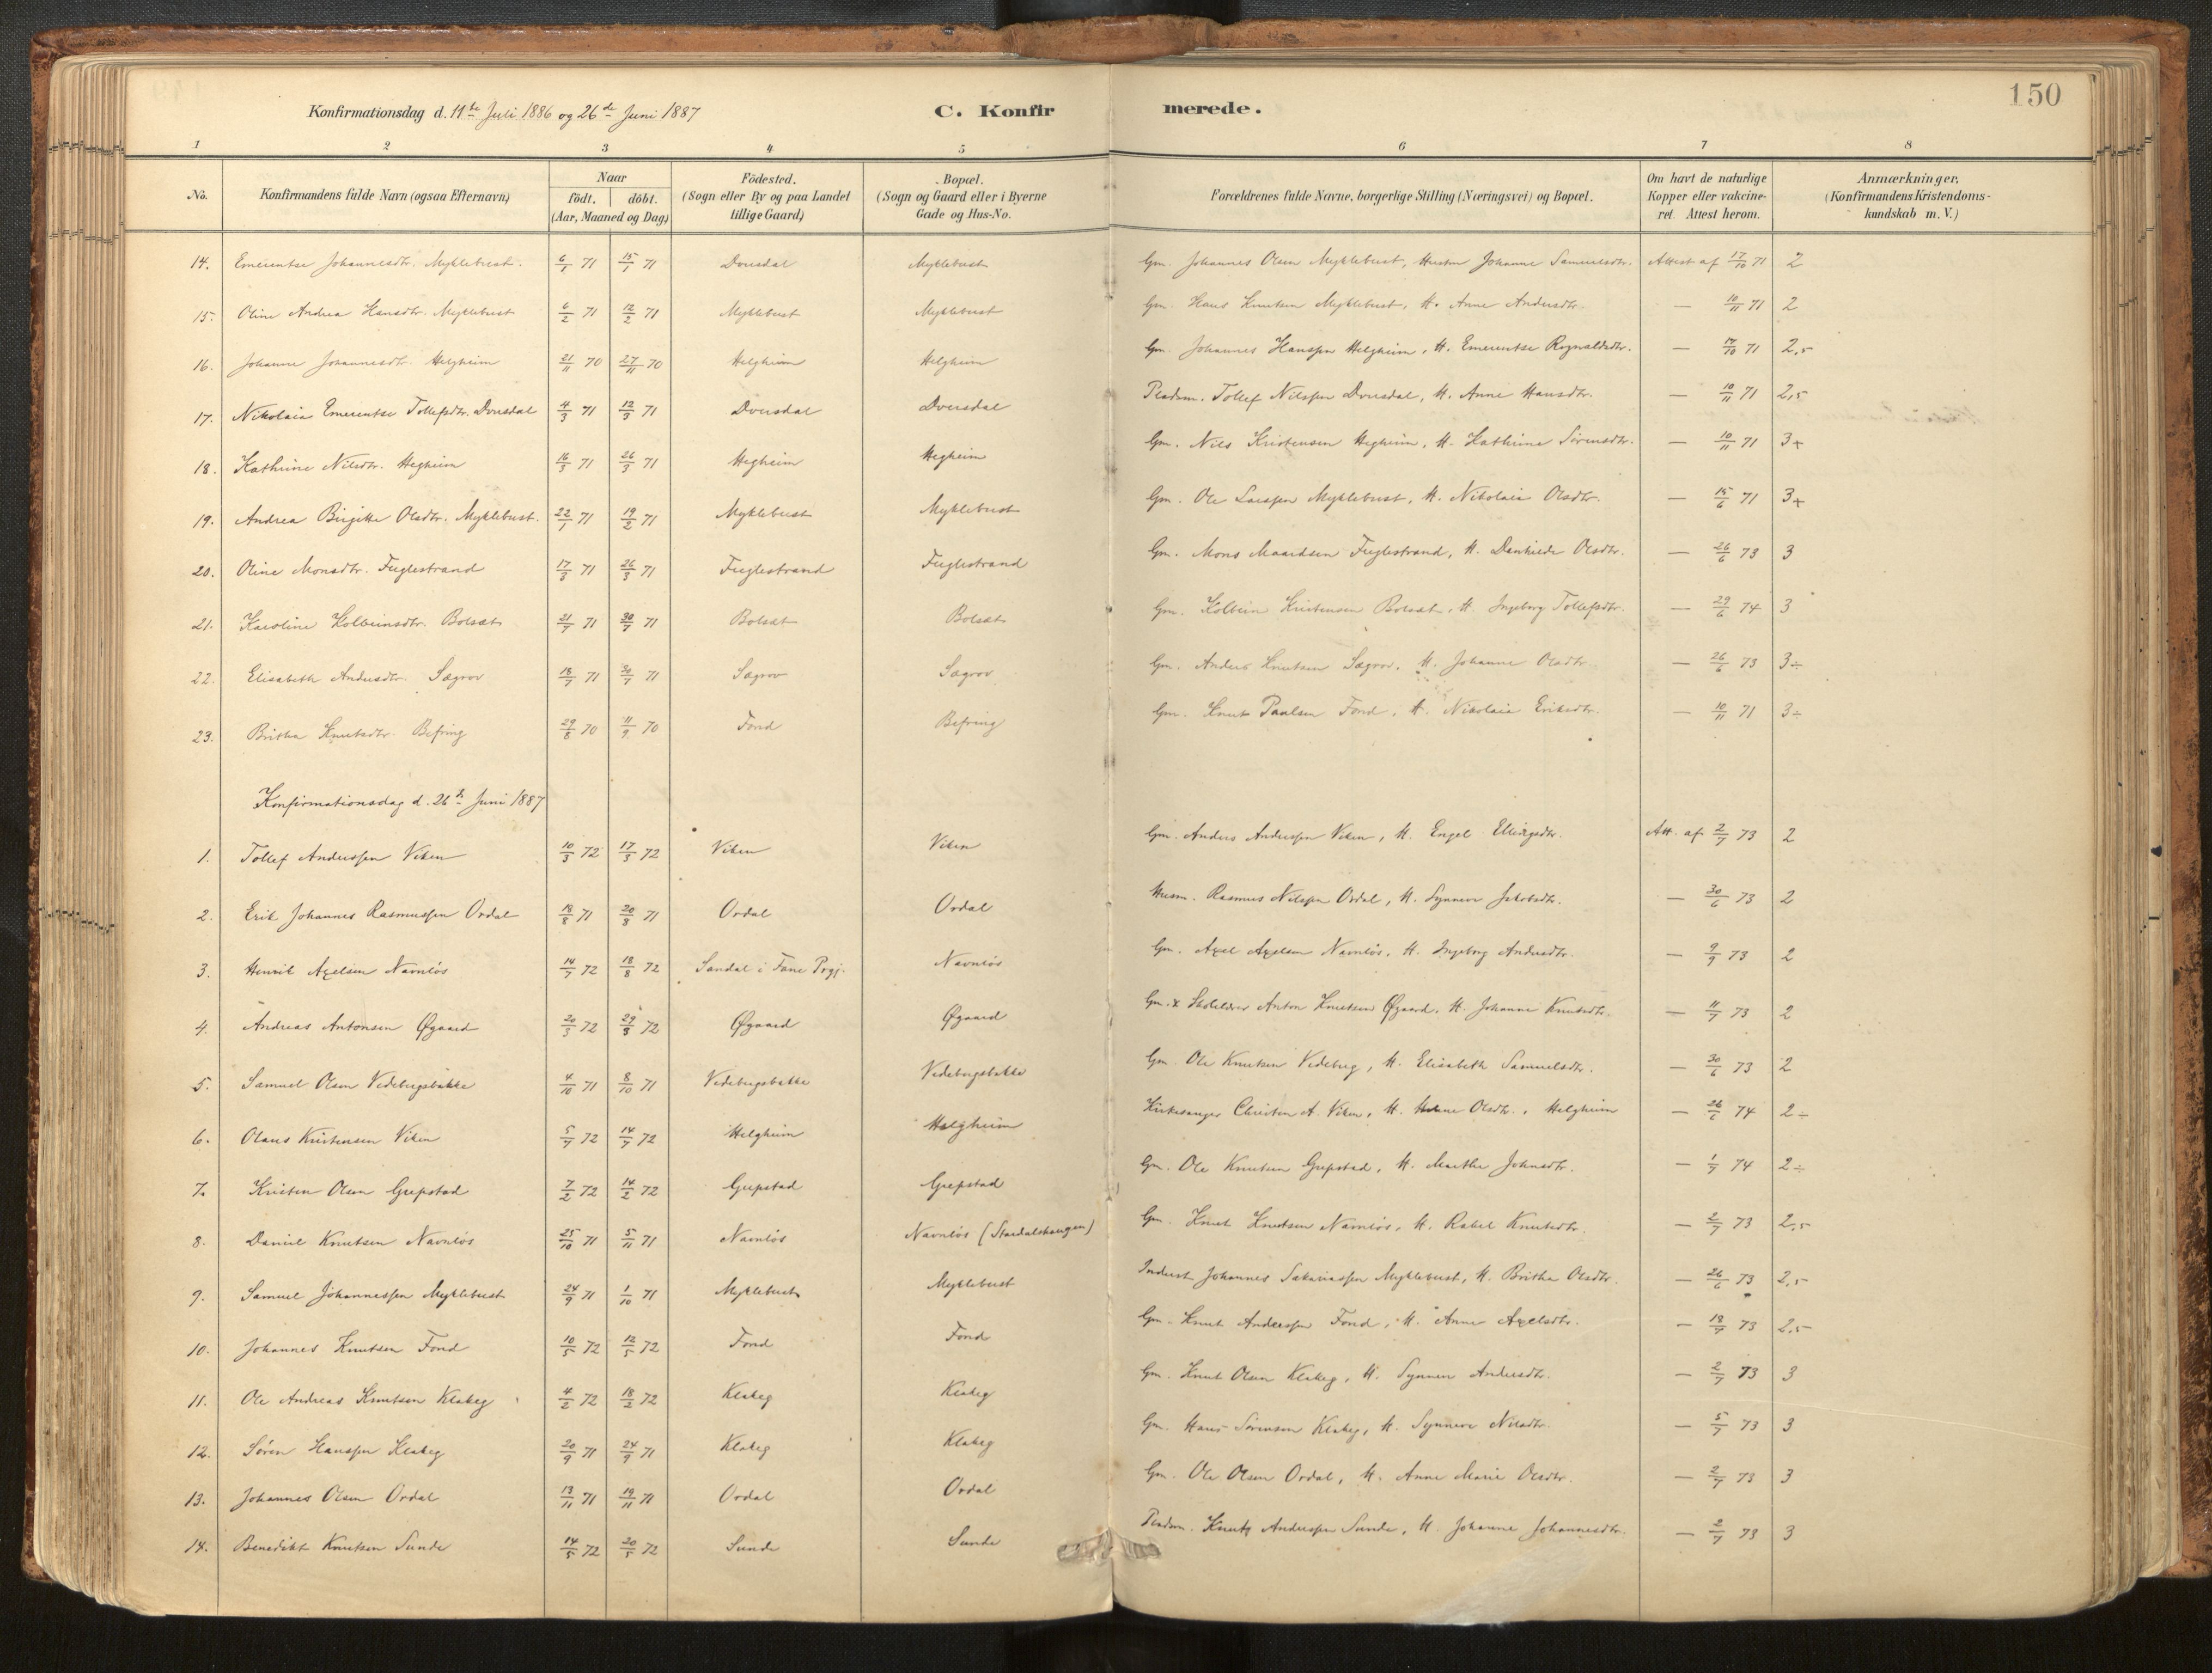 150
Konfirmationsdag d. 11te Juli 1886 og 26de Juni 1887
C. Konfirmerede.
1 2 3 4 5 6 7 8
No. | Konfirmandens fulde Navn (ogsaa Efternavn) | Naar födt. | döbt. (Aar, Maaned og Dag) | Födested. (Sogn eller By og paa Landet tillige Gaard) | Bopæl. (Sogn og Gaard eller i Byerne Gade og Hus-No. | Forældrenes fulde Navne, borgerlige Stilling (Næringsvei) og Bopæl. | Om havt de naturlige Kopper eller vakcineret. Attest herom. | Anmærkninger. (Konfirmandens Kristendomskundskab m. V.)
14. Emerentse Johannesdtr. Myklebust. 6/1 71 15/1 71 Dvesdal Myklebust Gm. Johannes Olsen Myklebust, Hustru Johanne Samuelsdtr. Attest af 17/10 71 2
15. Oline Andrea Hansdtr. Myklebust 6/2 71 12/2 71 Myklebust Myklebust Gm. Hans Knutsen Myklebust, H. Anne Andersdtr. — 10/11 71 2
16. Johanne Johannesdtr. Helgheim 21/11 70 27/11 70 Helgheim Helgheim Gm. Johannes Hanssen Helgheim, H. Emerentse Rognaldsdtr. — 17/10 71 2,5
17. Nikolaia Emerentse Tollefsdtr. Dvesdal 4/3 71 12/3 71 Dvesdal Dvesdal Pladsm. Tollef Nilssen Dvesdal, H. Anne Hansdtr. — 10/11 71 2,5
18. Kathrine Nilsdtr. Hegheim 16/3 71 26/3 71 Hegheim Hegheim Gm. Nils Kristensen Hegheim, H. Kathrine Sörensdtr. — 10/11 71 3+
19. Andrea Birgitte Olsdtr. Myklebust. 22/1 71 19/2 71 Myklebust Myklebust Gm. Ole Larssen Myklebust, H. Nikolaia Olsdtr. — 15/6 71 3+
20. Oline Monsdtr. Fuglestrand 17/3 71 26/3 71 Fuglestrand Fuglestrand Gm. Mons Maardsen Fuglestrand, H. Danhilde Olsdtr. — 26/6 73 3
21. Karoline Kolbeinsdtr. Bolsæt 21/7 71 30/7 71 Bolsæt Bolsæt Gm. Kolbein Kristensen Bolsæt, H. Ingeborg Tollefsdtr. — 29/6 74 3
22. Elisabeth Andersdtr. Sægrov 18/7 71 30/7 71 Sægrov Sægrov Gm. Anders Knutsen Sægrov. H. Johanne Olsdtr. — 26/6 73 3÷
23. Britha Knutsdtr. Befring 29/8 70 11/9 70 Fond Befring Gm. Knut Paulsen Fond, H. Nikolaia Eriksdtr. — 10/11 71 3÷
Konfirmationsdag d. 26de Juni 1887
1. Tollef Anderssen Viken 10/3 72 17/3 72 Viken Viken Gm. Anders Anderssen Viken, H. Engel Ellingsdtr. Att. af 2/7 73 2
2. Erik Johannes Rasmussen Ordal 18/8 71 20/8 71 Ordal Ordal Husm. Rasmus Nilssen Ordal, H. Synneve Jakobsdtr. — 30/6 73 2
3. Henrik Axelsen Navnløs 14/7 72 18/8 72 Sandal i Fane Prgj. Navnløs Gm. Axel Axelsen Navnløs, H. Ingeborg Andersdtr. — 9/9 73 2
4. Andreas Antonsen Øgaard 20/3 72 29/3 72 Øgaard Øgaard Gm. & Skolelærer Anton Knutsen Øgaard, H. Johanne Knutsdtr. — 11/7 73 2
5. Samuel Olsen Vedebergsbakke 4/10 71 8/10 71 Vedebergsbakke Vedebergsbakke Gm. Ole Knutsen Vedeberg, H. Elisabeth Samuelsdtr. — 30/6 73 2
6. Olaus Kristensen Viken 5/7 72 14/7 72 Helgheim Helgheim Kirkesanger Christen A. Viken, H. Olsdtr., Helgheim — 26/6 74 2÷
7. Kristen Olsen Grepstad 7/2 72 14/2 72 Grepstad Grepstad Gm. Ole Knutsen Grepstad, H. Marthe Johnsdtr. — 1/7 74 2÷
8. Daniel Knutsen Navnløs 25/10 71 5/11 71 Navnløs Navnløs (Stardalshaugen) Gm. Knut Knutsen Navnløs, H. Rakel Knutsdtr. — 2/7 73 2,5
9. Samuel Johannessen Myklebust 24/9 71 1/10 71 Myklebust Myklebust Inderst Johannes Sakariassen Myklebust, H. Britha Olsdtr. — 26/6 73 2,5
10. Johannes Knutsen Fond 10/5 72 12/5 72 Fond Fond Gm. Knut Anderssen Fond, H. Anne Axelsdtr. — 18/7 73 2,5
11. Ole Andreas Knutsen Klakeg 4/2 72 18/2 72 Klakeg Klakeg Gm. Knut Olsen Klakeg, H. Synneve Andersdtr. — 2/7 73 3
12. Sören Hanssen Klakeg 20/9 71 24/9 71 Klakeg Klakeg Gm. Hans Sörensen Klakeg, H. Synneve Nilsdtr. — 5/7 73 3
13. Johannes Olsen Ordal 13/11 71 19/11 71 Ordal Ordal Gm. Ole Olsen Ordal, H. Anne Marie Olsdtr. — 2/7 73 3
14. Benedikt Knutsen Sunde 14/5 72 20/5 72 Sunde Sunde Pladsm. Knut Anderssen Sunde, H. Johanne Johannesdtr. — 2/7 73 3